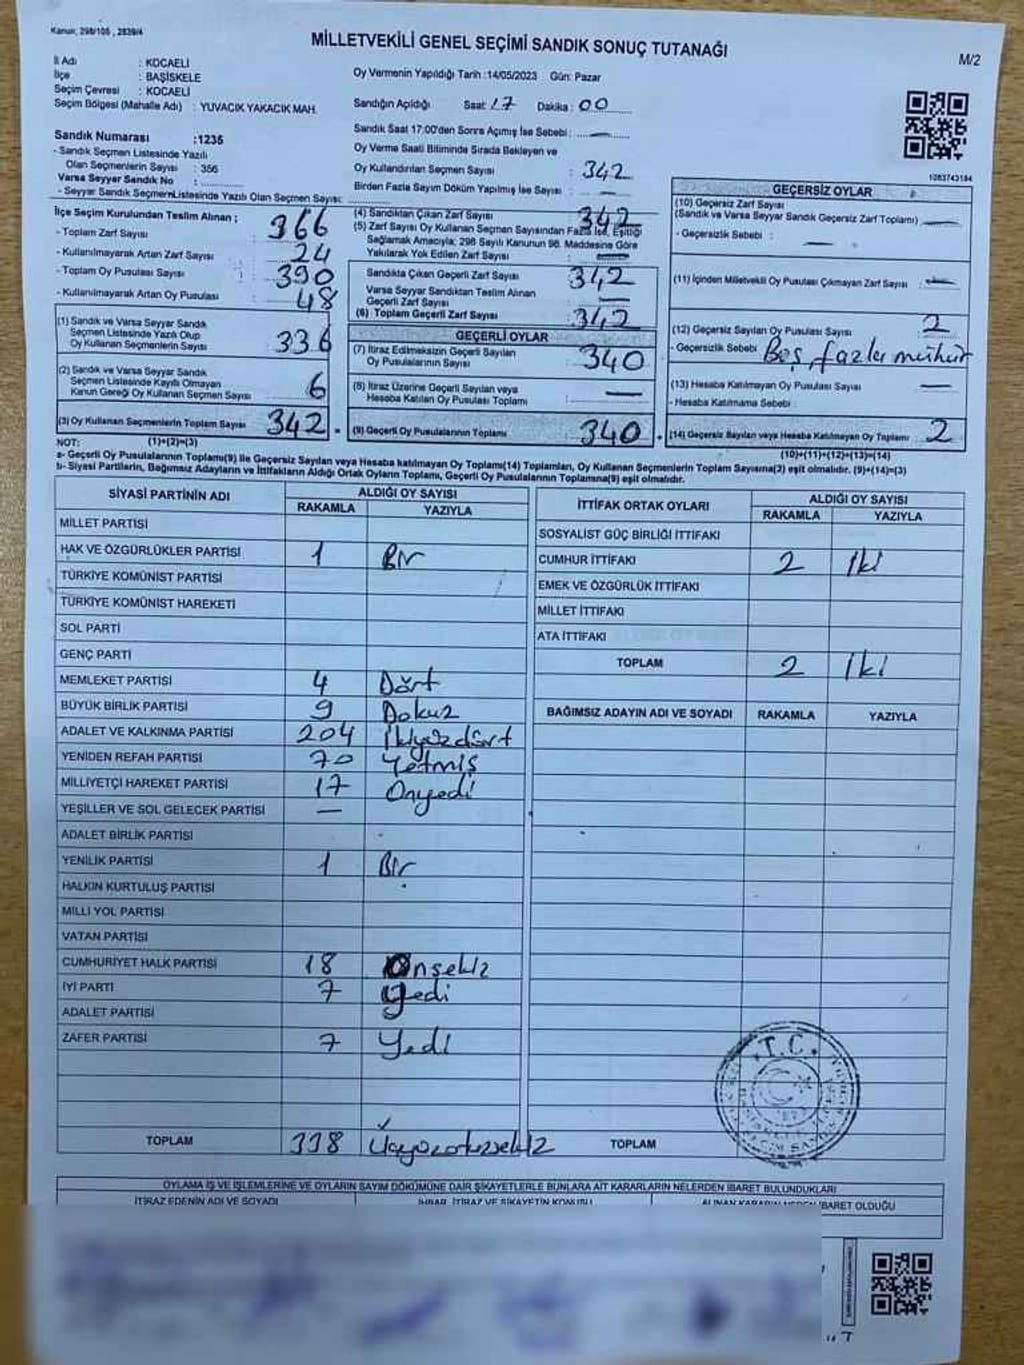 Kanun; 298/105 , 2839/4
MİLLETVEKİLİ GENEL SEÇİMİ SANDIK SONUÇ TUTANAĞI
M/2
İl Adı : KOCAELİ
İlçe : BAŞİSKELE
Seçim Çevresi : KOCAELİ
Seçim Bölgesi (Mahalle Adı) : YUVACIK YAKACIK MAH.
Oy Vermenin Yapıldığı Tarih :14/05/2023 Gün: Pazar
Sandığın Açıldığı Saat: 17 Dakika: 00
Sandık Saat 17:00'den Sonra Açımış İse Sebebi : —
Oy Verme Saati Bitiminde Sırada Bekleyen ve
Oy Kullandırılan Seçmen Sayısı : 342
Birden Fazla Sayım Döküm Yapılmış İse Sayısı : —
Sandık Numarası :1235
- Sandık Seçmen Listesinde Yazılı
Olan Seçmenlerin Sayısı : 356
Varsa Seyyar Sandık No :
- Seyyar Sandık SeçmenListesinde Yazılı Olan Seçmen Sayısı:
1083743184
İlçe Seçim Kurulundan Teslim Alınan ;
- Toplam Zarf Sayısı : 366
- Kullanılmayarak Artan Zarf Sayısı : 24
- Toplam Oy Pusulası Sayısı : 390
- Kullanılmayarak Artan Oy Pusulası : 48
(1) Sandık ve Varsa Seyyar Sandık
Seçmen Listesinde Yazılı Olup
Oy Kullanan Seçmenlerin Sayısı : 336
(2) Sandık ve Varsa Seyyar Sandık
Seçmen Listesinde Kayıtlı Olmayan
Kanun Gereği Oy Kullanan Seçmen Sayısı : 6
(3) Oy Kullanan Seçmenlerin Toplam Sayısı : 342
(4) Sandıktan Çıkan Zarf Sayısı : 342
(5) Zarf Sayısı Oy Kullanan Seçmen Sayısından Fazla İse, Eşitliği
Sağlamak Amacıyla; 298 Sayılı Kanunun 98. Maddesine Göre
Yakılarak Yok Edilen Zarf Sayısı : —
Sandıkta Çıkan Geçerli Zarf Sayısı : 342
Varsa Seyyar Sandıktan Teslim Alınan
Geçerli Zarf Sayısı : —
(6) Toplam Geçerli Zarf Sayısı : 342
GEÇERLİ OYLAR
(7) İtiraz Edilmeksizin Geçerli Sayılan
Oy Pusulalarının Sayısı : 340
(8) İtiraz Üzerine Geçerli Sayılan veya
Hesaba Katılan Oy Pusulası Toplamı : —
(9) Geçerli Oy Pusulalarının Toplamı : 340
GEÇERSİZ OYLAR
(10) Geçersiz Zarf Sayısı
(Sandık ve Varsa Seyyar Sandık Geçersiz Zarf Toplamı) : —
- Geçersizlik Sebebi : —
(11) İçinden Milletvekili Oy Pusulası Çıkmayan Zarf Sayısı : —
(12) Geçersiz Sayılan Oy Pusulası Sayısı : 2
- Geçersizlik Sebebi : Boş, fazla mühür
(13) Hesaba Katılmayan Oy Pusulası Sayısı : —
- Hesaba Katılmama Sebebi :
(14) Geçersiz Sayılan veya Hesaba Katılmayan Oy Toplamı : 2
NOT: (1)+(2)=(3)
(10)+(11)+(12)+(13)=(14)
a- Geçerli Oy Pusulalarının Toplamı(9) ile Geçersiz Sayılan veya Hesaba katılmayan Oy Toplamı(14) Toplamları, Oy Kullanan Seçmenlerin Toplam Sayısına(3) eşit olmalıdır. (9)+(14)=(3)
b- Siyasi Partilerin, Bağımsız Adayların ve İttifakların Aldığı Ortak Oyların Toplamı, Geçerli Oy Pusulalarının Toplamına(9) eşit olmalıdır.
SİYASİ PARTİNİN ADI ALDIĞI OY SAYISI
RAKAMLA YAZIYLA
MİLLET PARTİSİ
HAK VE ÖZGÜRLÜKLER PARTİSİ 1 Bir
TÜRKİYE KOMÜNİST PARTİSİ
TÜRKİYE KOMÜNİST HAREKETİ
SOL PARTİ
GENÇ PARTİ
MEMLEKET PARTİSİ 4 Dört
BÜYÜK BİRLİK PARTİSİ 9 Dokuz
ADALET VE KALKINMA PARTİSİ 204 İkiyüzdört
YENİDEN REFAH PARTİSİ 70 Yetmiş
MİLLİYETÇİ HAREKET PARTİSİ 17 Onyedi
YEŞİLLER VE SOL GELECEK PARTİSİ —
ADALET BİRLİK PARTİSİ
YENİLİK PARTİSİ 1 Bir
HALKIN KURTULUŞ PARTİSİ
MİLLİ YOL PARTİSİ
VATAN PARTİSİ
CUMHURİYET HALK PARTİSİ 18 Onsekiz
İYİ PARTİ 7 Yedi
ADALET PARTİSİ
ZAFER PARTİSİ 7 Yedi
TOPLAM 338 Üçyüzotuzsekiz
İTTİFAK ORTAK OYLARI ALDIĞI OY SAYISI
RAKAMLA YAZIYLA
SOSYALİST GÜÇ BİRLİĞİ İTTİFAKI
CUMHUR İTTİFAKI 2 İki
EMEK VE ÖZGÜRLÜK İTTİFAKI
MİLLET İTTİFAKI
ATA İTTİFAKI
TOPLAM 2 İki
BAĞIMSIZ ADAYIN ADI VE SOYADI RAKAMLA YAZIYLA
TOPLAM
T.C.
OYLAMA İŞ VE İŞLEMLERİNE VE OYLARIN SAYIM DÖKÜMÜNE DAİR ŞİKAYETLERLE BUNLARA AİT KARARLARIN NELERDEN İBARET BULUNDUKLARI
İTİRAZ EDENİN ADI VE SOYADI İHBAR, İTİRAZ VE ŞİKAYETİN KONUSU ALINAN KARARIN NEDEN İBARET OLDUĞU